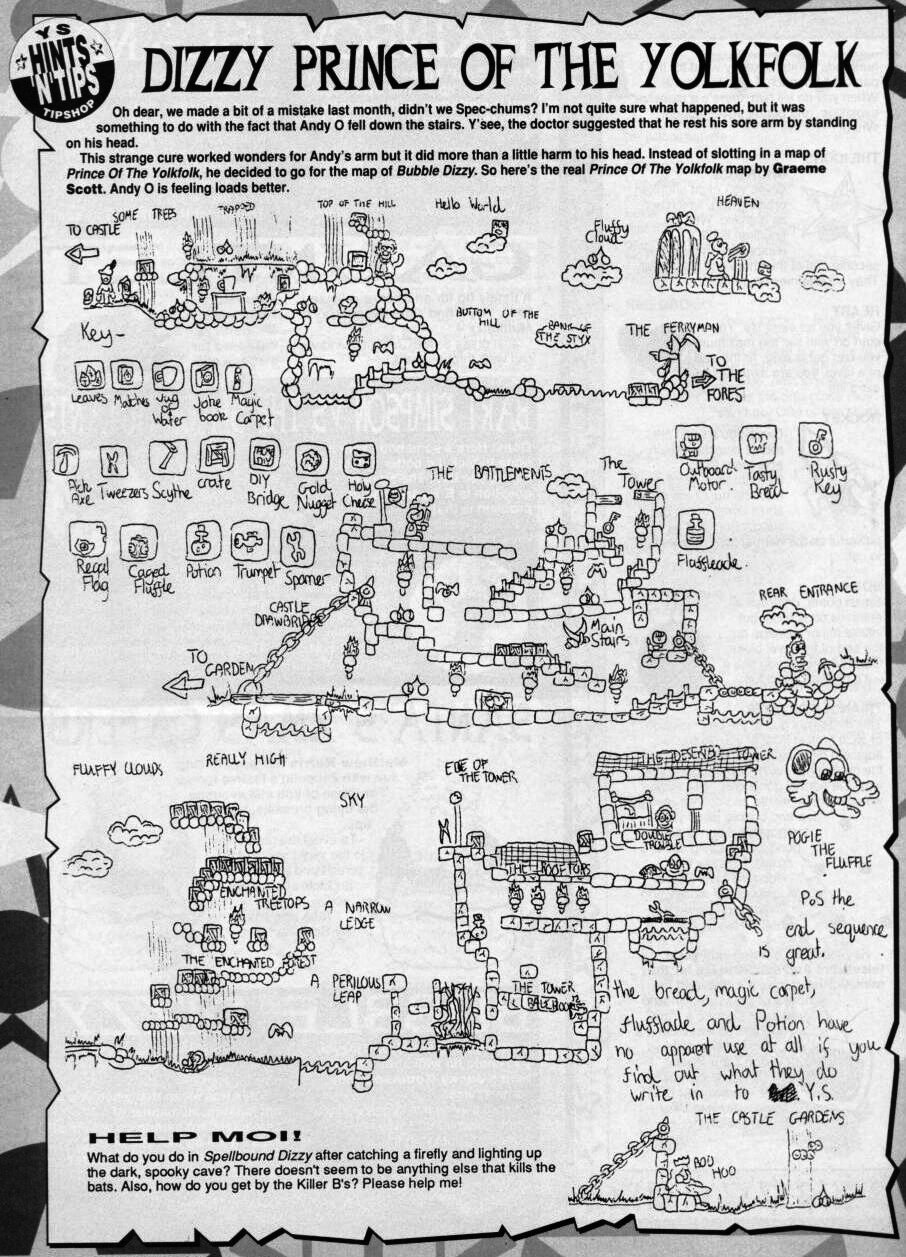 YS
HINTS
'N'TIPS
TIPSHOP
DIZZY PRINCE OF THE YOLKFOLK
Oh dear, we made a bit of a mistake last month, didn't we Spec-chums? I'm not quite sure what happened, but it was
something to do with the fact that Andy O fell down the stairs. Y'see, the doctor suggested that he rest his sore arm by standing
on his head.
This strange cure worked wonders for Andy's arm but it did more than a little harm to his head. Instead of slotting in a map of
Prince Of The Yolkfolk, he decided to go for the map of Bubble Dizzy. So here's the real Prince Of The Yolkfolk map by Graeme
Scott. Andy O is feeling loads better.
TO CASTLE
SOME TREES
TRAPPED
TOP OF THE HILL
Hello World
Fluffy
Cloud
HEAVEN
Key-
BOTTOM OF THE
HILL
BANK OF
THE STYX
THE FERRYMAN
TO
THE
FORES
Leaves
Matches
Jug
of
Water
Joke
book
Magic
Carpet
Pick
Axe
Tweezers
Scythe
crate
DIY
Bridge
Gold
Nugget
Holy
Cheese
THE BATTLEMENTS
The
Tower
Outboard
Motor.
Tasty
Bread
Rusty
Key
Regal
Flag
Caged
Fluffle
Potion
Trumpet
Spanner
Fluffleade.
CASTLE
DRAWBRIDGE
Main
Stairs
REAR ENTRANCE
TO
GARDEN
FLUFFY CLOUDS
REALLY HIGH
SKY
EDGE OF
THE TOWER
THE DESERTED TOWER
DOUBLE
TROUBLE
THE ROOFTOPS
POGIE
THE
FLUFFLE
ENCHANTED
TREETOPS
A NARROW
LEDGE
THE ENCHANTED FOREST
A PERILOUS
LEAP
THE TOWER
BALLROOM
P.S the
end sequence
is great.
the bread, magic carpet,
fluffleade and Potion have
no apparent use at all if you
find out what they do
write in to Y.S.
THE CASTLE GARDENS
BOO
HOO
HELP MOI!
What do you do in Spellbound Dizzy after catching a firefly and lighting up
the dark, spooky cave? There doesn't seem to be anything else that kills the
bats. Also, how do you get by the Killer B's? Please help me!